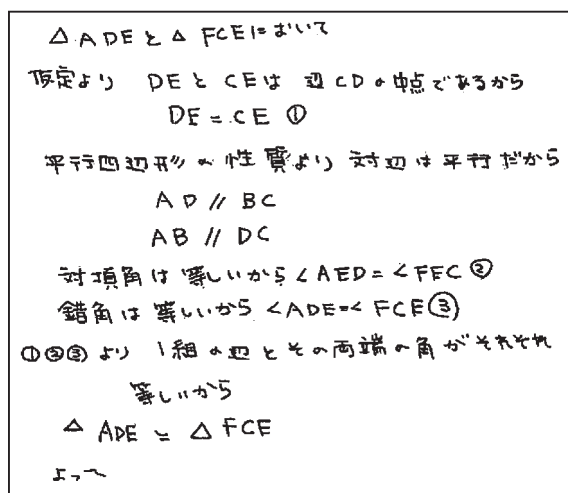 △ADEと△FCEにおいて
仮定より DEとCEは 辺CDの中点であるから
DE=CE ①
平行四辺形の性質より 対辺は平行だから
AD // BC
AB // DC
対頂角は等しいから∠AED=∠FEC②
錯角は等しいから∠ADE=∠FCE③
①②③より 1組の辺とその両端の角がそれぞれ
等しいから
△ADE ≡ △FCE
よって